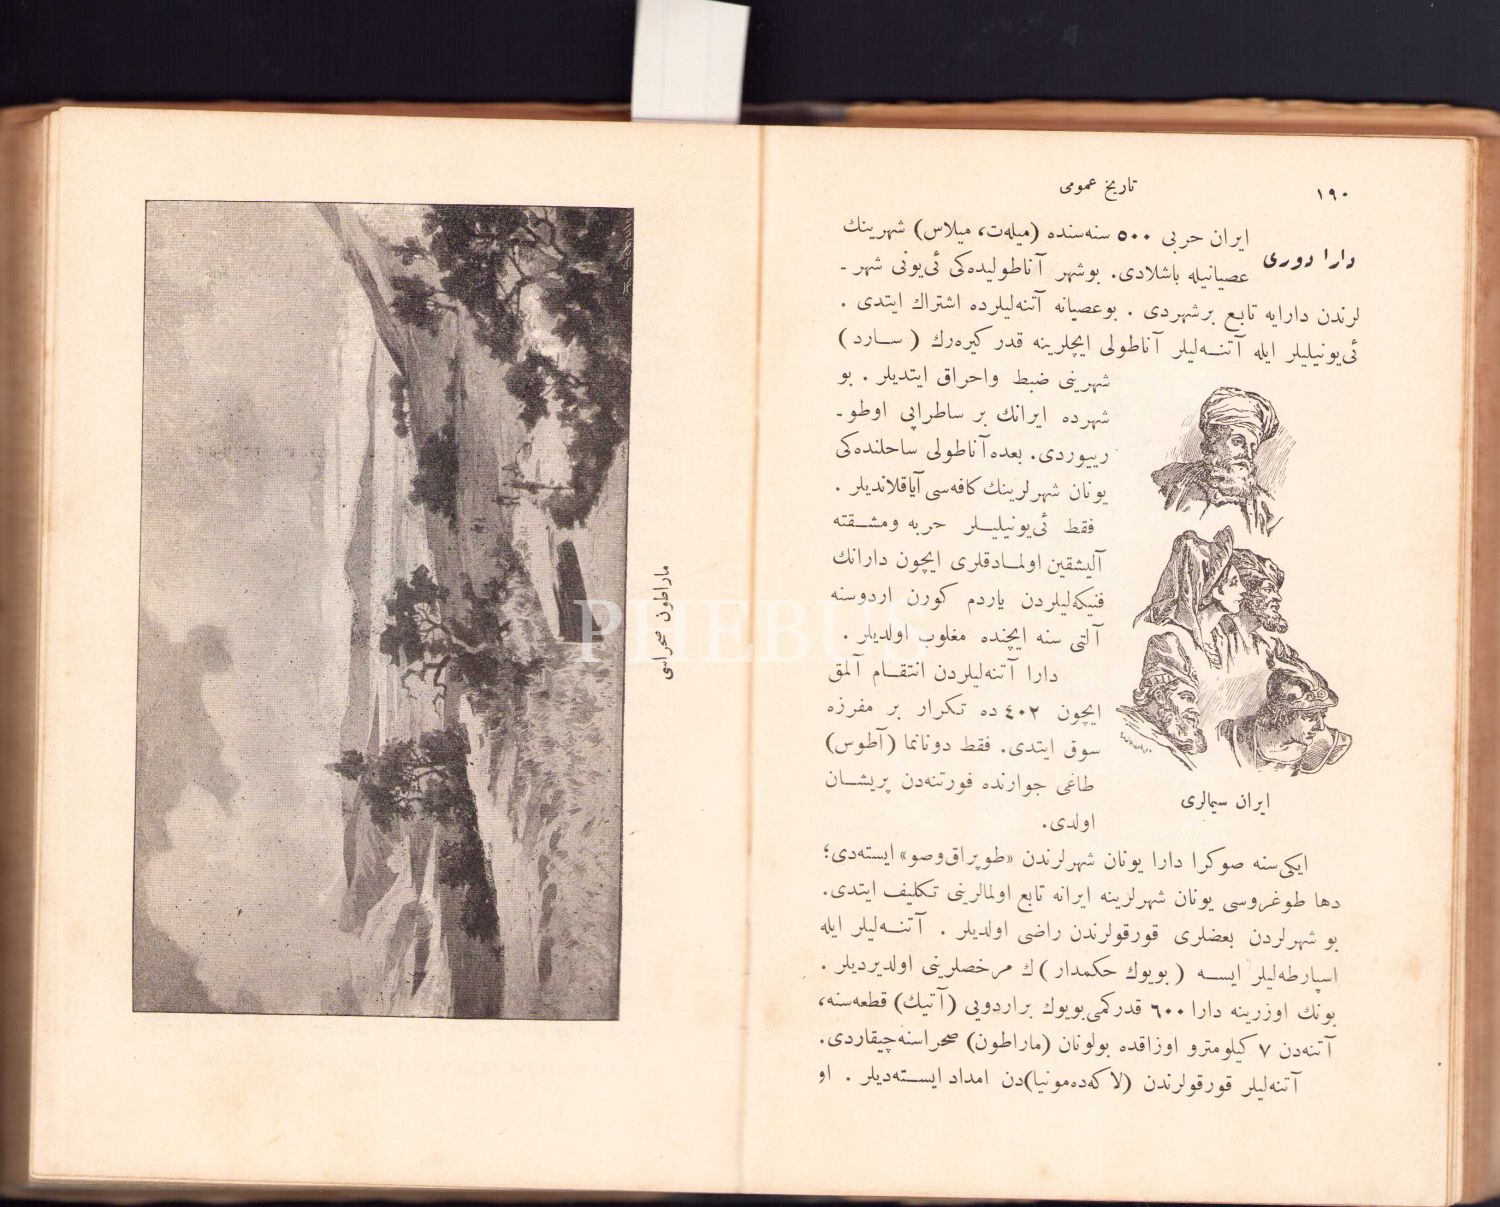 ١٩٠
تاريخ عمومی
دارا دوری
ايران حربی ٥٠٠ سنه‌سنده (ميله‌ت، ميلاس) شهرينك
عصيانيله باشلادی. بوشهر آناطوليده‌كی ئی‌يونی شهر ـ
لرندن دارايه تابع برشهردی . بوعصيانه آتنه‌ليلرده اشتراك ايتدی .
ئی‌يونيليلر ايله آتنــه‌ليلر آناطولی ايچلرينه قدر كيره‌رك ( ســارد )
شهرينی ضبط واحراق ايتديلر . بو
شهرده ايرانك بر ساطراپی اوطو ـ
رييوردی. بعده آناطولی ساحلنده‌كی
يونان شهرلرينك كافه‌سی آياقلانديلر .
فقط ئی‌يونيليــلر حربه ومشــقته
آليشقين اولمــادقلری ايچون دارانك
فنيكه‌ليلردن ياردم كورن اردوسنه
آلتی سنه ايچنده مغلوب اولديلر .
دارا آتنه‌ليلردن انتقــام آلمق
ايچون ٤٠٢ ده تكرار بر مفرزه
سوق ايتدی. فقط دونانما (آطوس)
طاغی جوارنده فورتنه‌دن پريشــان
اولدی.
ايران سيمالری
ايكی سنه صوكرا دارا يونان شهرلرندن «طوپراق‌وصو» ايسته‌دی؛
دها طوغروسی يونان شهرلزينه ايرانه تابع اولمالرينی تكليف ايتدی.
بو شهرلردن بعضلری قورقولرندن راضی اولديلر . آتنــه‌ليلر ايله
اسپارطه‌ليلر ايســه ( بويوك حكمدار ) ك مرخصلرينی اولديرديلر .
بونك اوزرينه دارا ٦٠٠ قدركمی‌بويوك براردويی (آتيك) قطعه‌سنه،
آتنه‌دن ٧ كيلومترو اوزاقده بولونان (ماراطون) صحراسنه‌چيقاردی.
آتنه‌ليلر قورقولرندن (لاكه‌ده‌مونيا)دن امداد ايســته‌ديلر . او
ماراطون صحراسی
PHEBUS